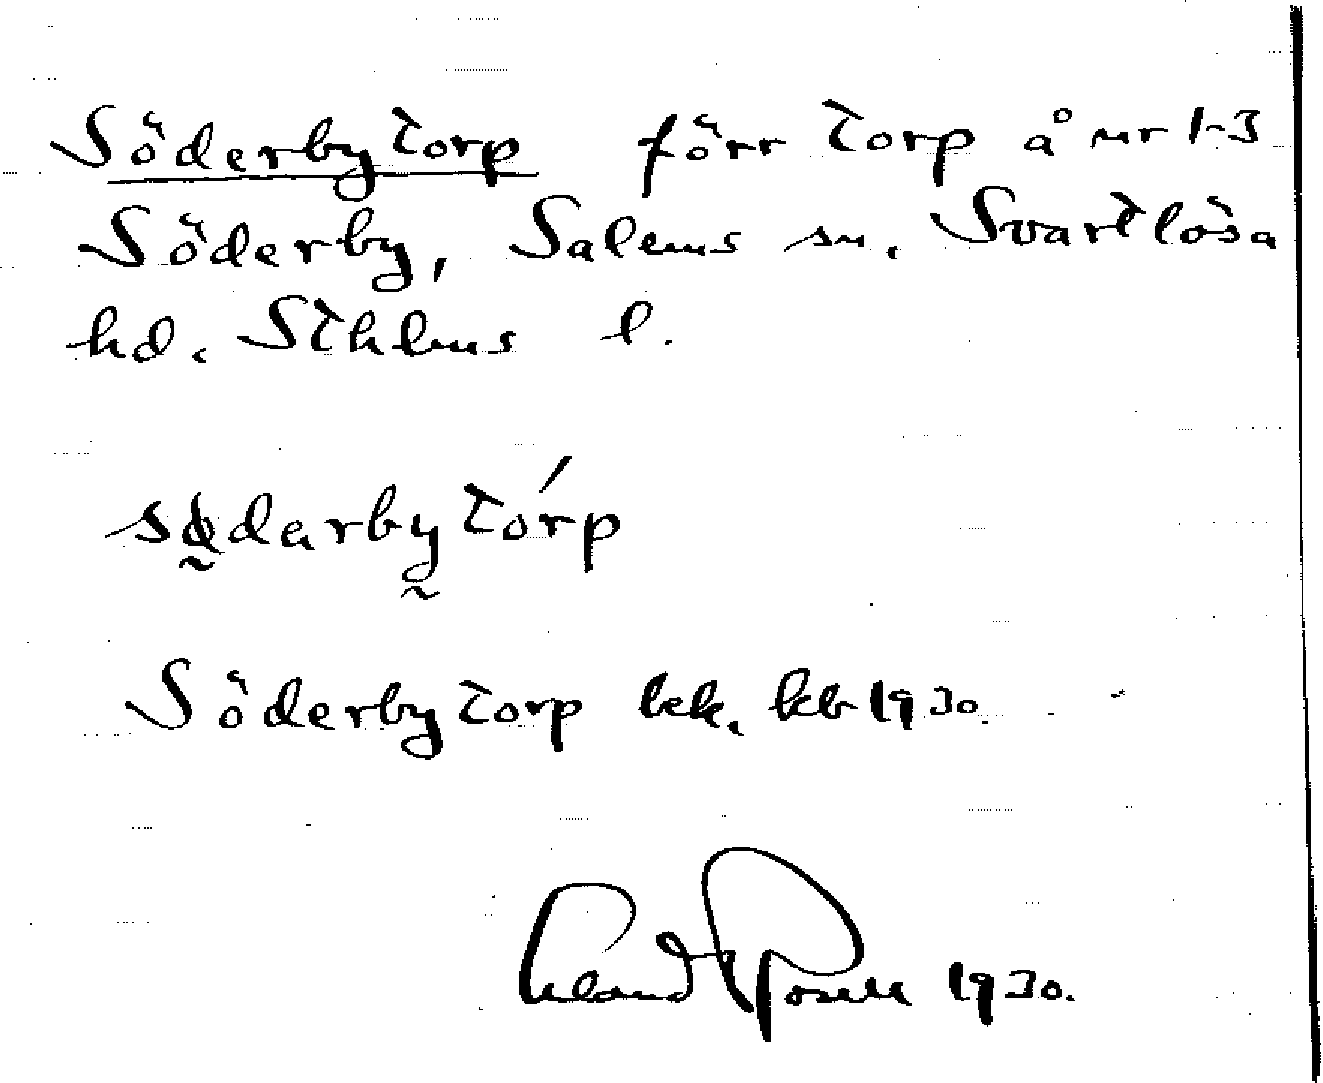 Söderbytorp förr torp å nr 1-3
Söderby, Salems sn. Svartlösa
hd. Sthlms l.
södarbytórp
Söderbytorp bek. kb 1930.
Erland Rosell 1930.